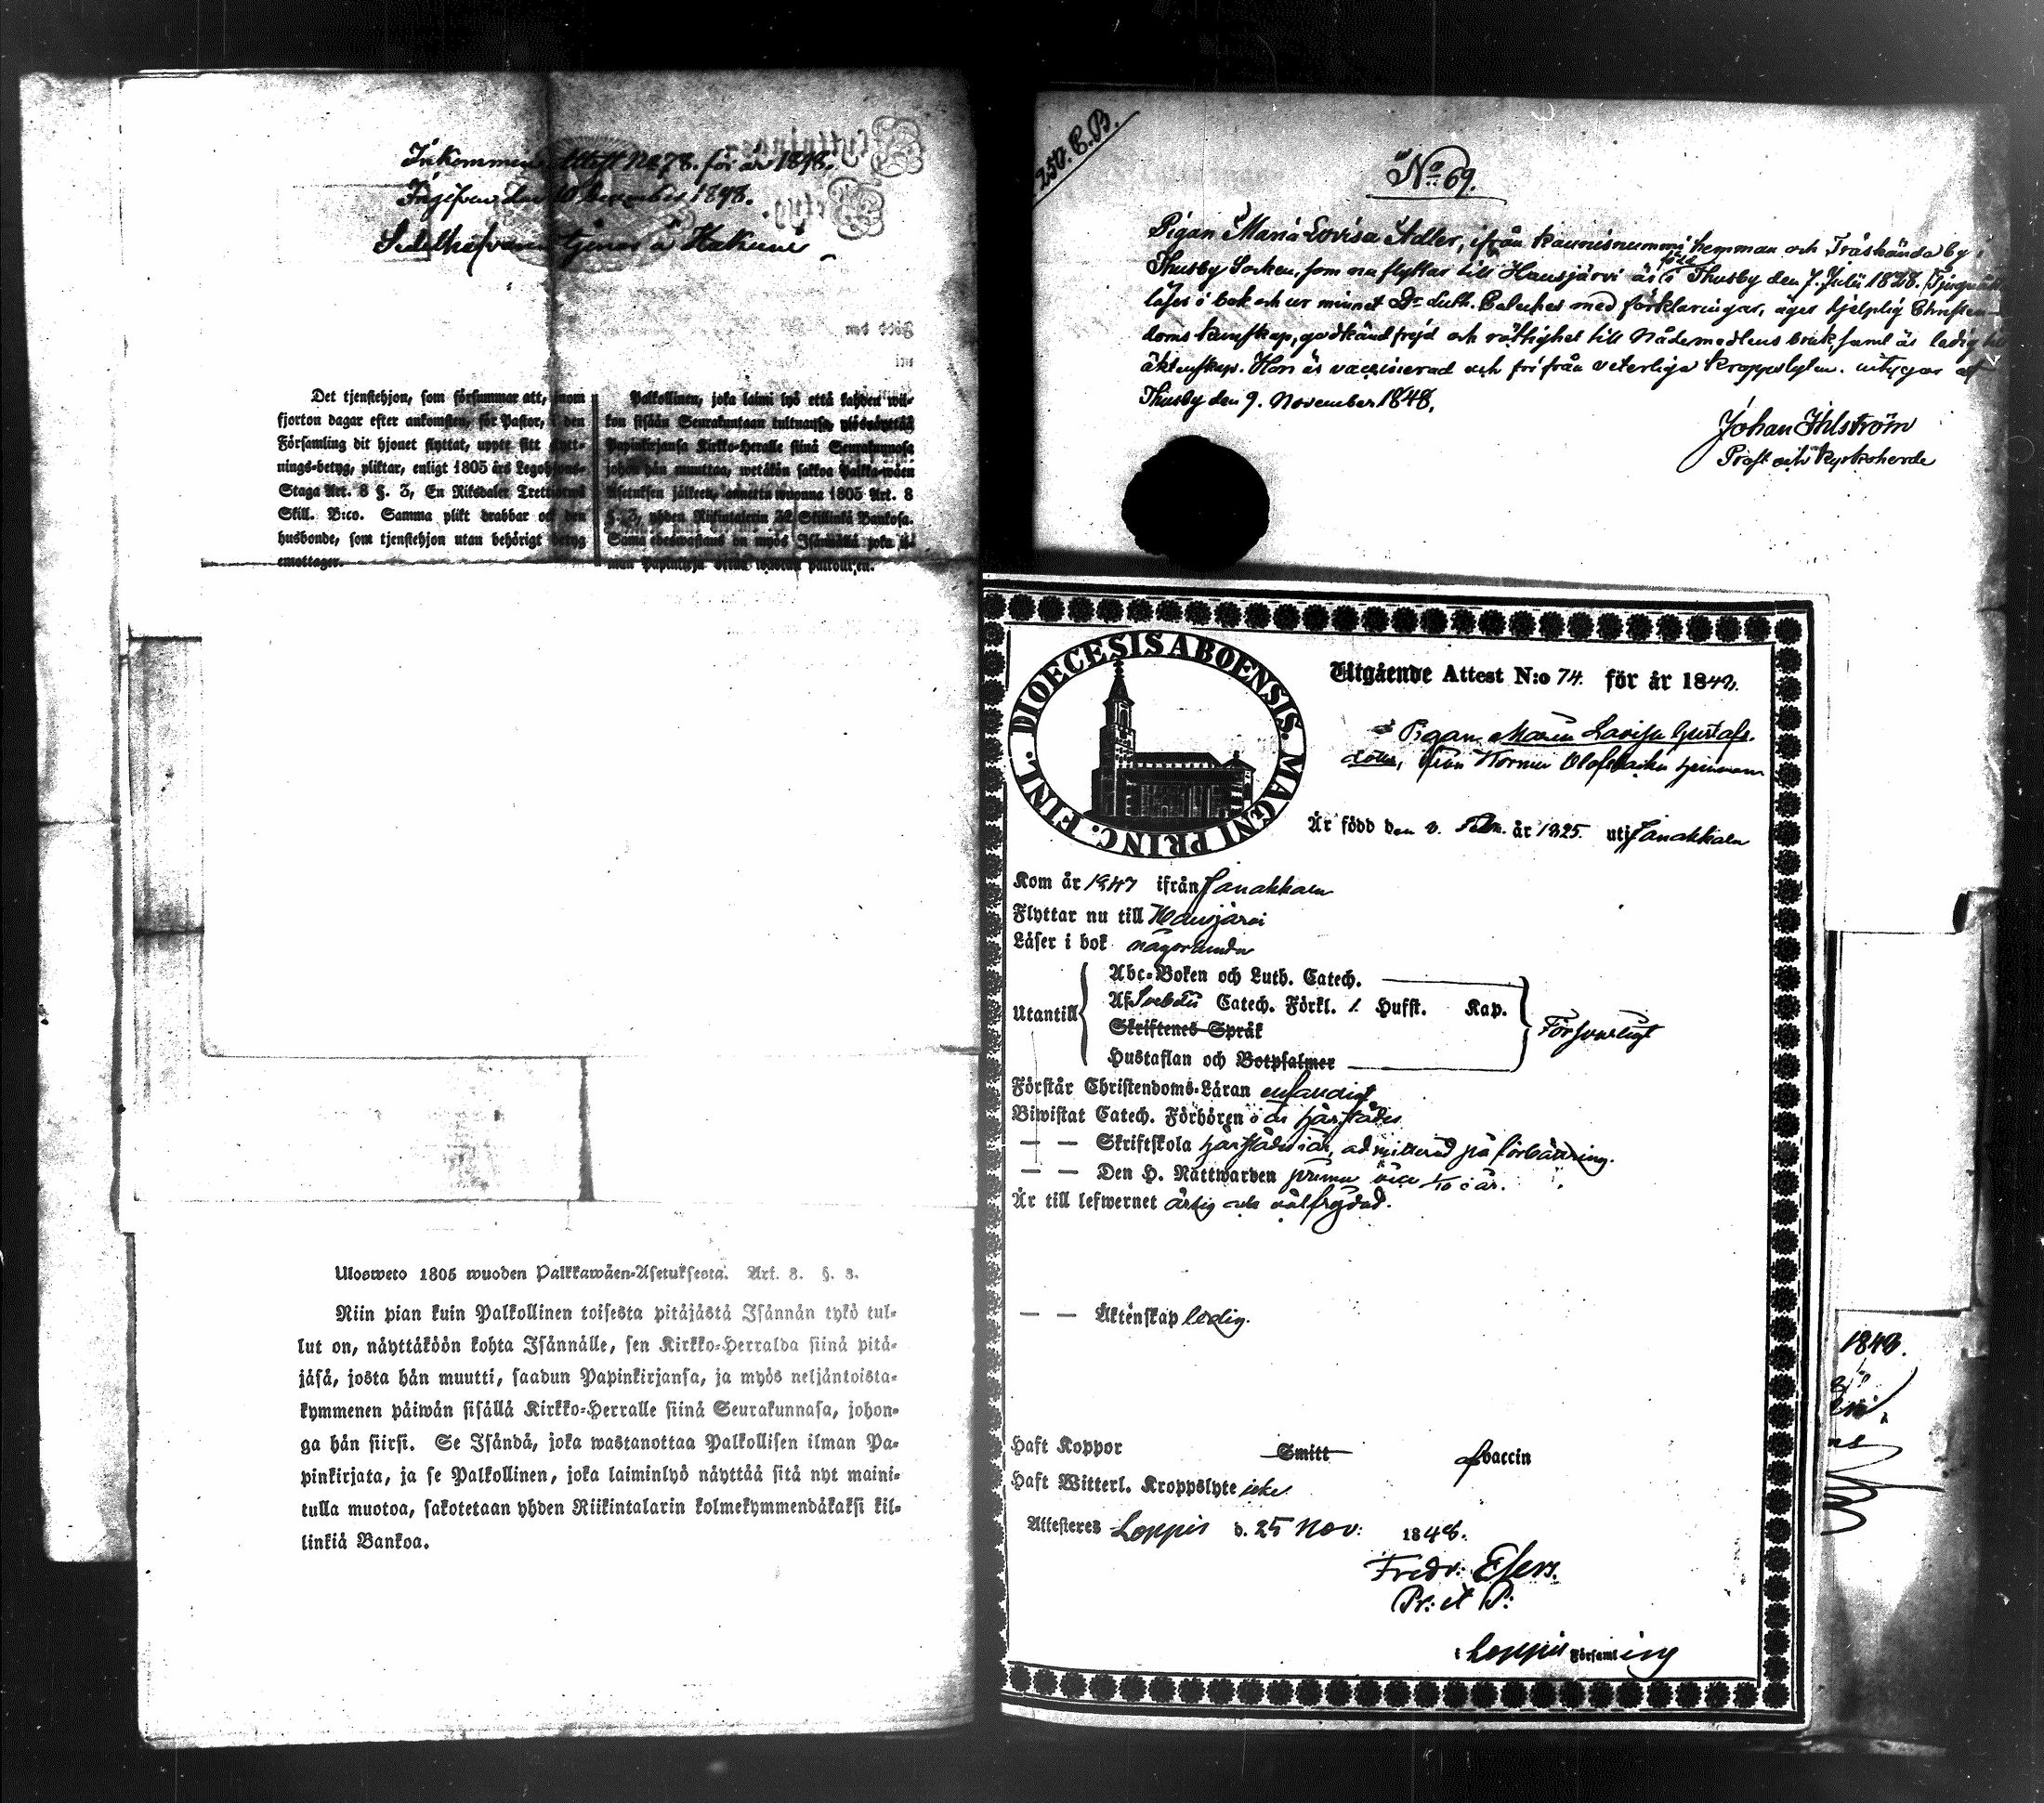 Inkommen Attest No 78. för år 1848.
Ingifven den 10 December 1848.
Sedelhafvaren tjenar å Hakuni
Flyttnings-
Betyg.
Född den
uti
Det tjenstehjon, som försummar att, inom
fjorton dagar efter ankomsten, för Pastor, i den
Församling dit hjonet flyttat, uppte sitt flytt-
nings-betyg, pliktar, enligt 1805 års Legohjons-
Stága Art. 8 §. 3, En Riksdaler Trettiotwå
Skill. B:co. Samma plikt drabbar ock den
husbonde, som tjenstehjon utan behörigt betyg
emottager.
Palkollinen, joka laimi lyö että kahden wii-
kon sisään Seurakuntaan tultuansa, ylösnäyttää
Papinkirjansa Kirkko-Herralle siinä Seurakunnasa
johon hän muuttaa, wetäkön sakkoa Palkka-wäen
Asetuksen jälkeen, annettu wuonna 1805 Art. 8
§. 3, yhden Riikintalerin 32 Skillinkiä Bankosa.
Sama edeswastaus on myös Isännällä joka il-
man Papinkirja ottaa wastan palkolisen.
Ulosweto 1805 wuoden Palkkawäen-Asetuksesta. Art. 8. §. 3.
Niin pian kuin Palkollinen toisesta pitäjästä Isännän tykö tul-
lut on, näyttäköön kohta Isännälle, sen Kirkko-Herralda siinä pitä-
jäsä, josta hän muutti, saadun Papinkirjansa, ja myös neljäntoista-
kymmenen päiwän sisällä Kirkko-Herralle siinä Seurakunnasa, johon-
ga hän siirsi. Se Isändä, joka wastanottaa Palkollisen ilman Pa-
pinkirjata, ja se Palkollinen, joka laiminlyö näyttää sitä nyt maini-
tulla muotoa, sakotetaan yhden Riikintalarin kolmekymmendäkaksi kil-
linkiä Bankoa.
250. C.B.
No 69.
Pigan Maria Lovisa Adler, ifrån Kaunisnummi hemman och Träskända by i
Thusby Socken, som nu flyttar till Hausjärvi är född i Thusby den 7. Julii 1828.
läser i bok och ur minnet Dr Luth. Cateches med förklaringar, äger hjelplig Christen-
doms kunskap, godkänd frejd och rättighet till Nådemedlens bruk, samt är ledig till
äktenskap. Hon är vaccinerad och fri från veterliga kroppslyten. intygar af
Thusby den 9. November 1848.
Johan Ihlström
Prost och Kyrkoherde
DIOECESIS ABOENSIS. MAGNI PRINC. FINL.
Utgående Attest N:o 74. för år 1848.
Pigan Maria Lovisa Gustafs-
dotter, från Kormu Olofsbacka hemman
Är född den 3. Febr. år 1825. uti Janakkala
Kom år 1847 ifrån Janakkala
Flyttar nu till Hausjärvi
Läser i bok någorlunda
Utantill
Abc-Boken och Luth. Catech.
Af Svebelii Catech. Förkl. 1. Hufst. Kap.
Skriftenes Språk
Hustaflan och Botpsalmer
Försvarligt
Förstår Christendoms-Läran enfaldigt
Biwistat Catech. Förhören i år härstädes
— — Skriftskola härstädes i år, admitterad på förbättring.
— — Den H. Nattwarden prima vice 1/10 i år.
Är till lefwernet ärlig och välfrejdad.
— — Äktenskap ledig.
Haft Koppor Smitt af vaccin
Haft Witterl. Kroppslyte icke
Attesteres Loppis d. 25 Nov: 1848.
Fredr: Elfers.
Pr: et P:
i Loppis Församling
1848.